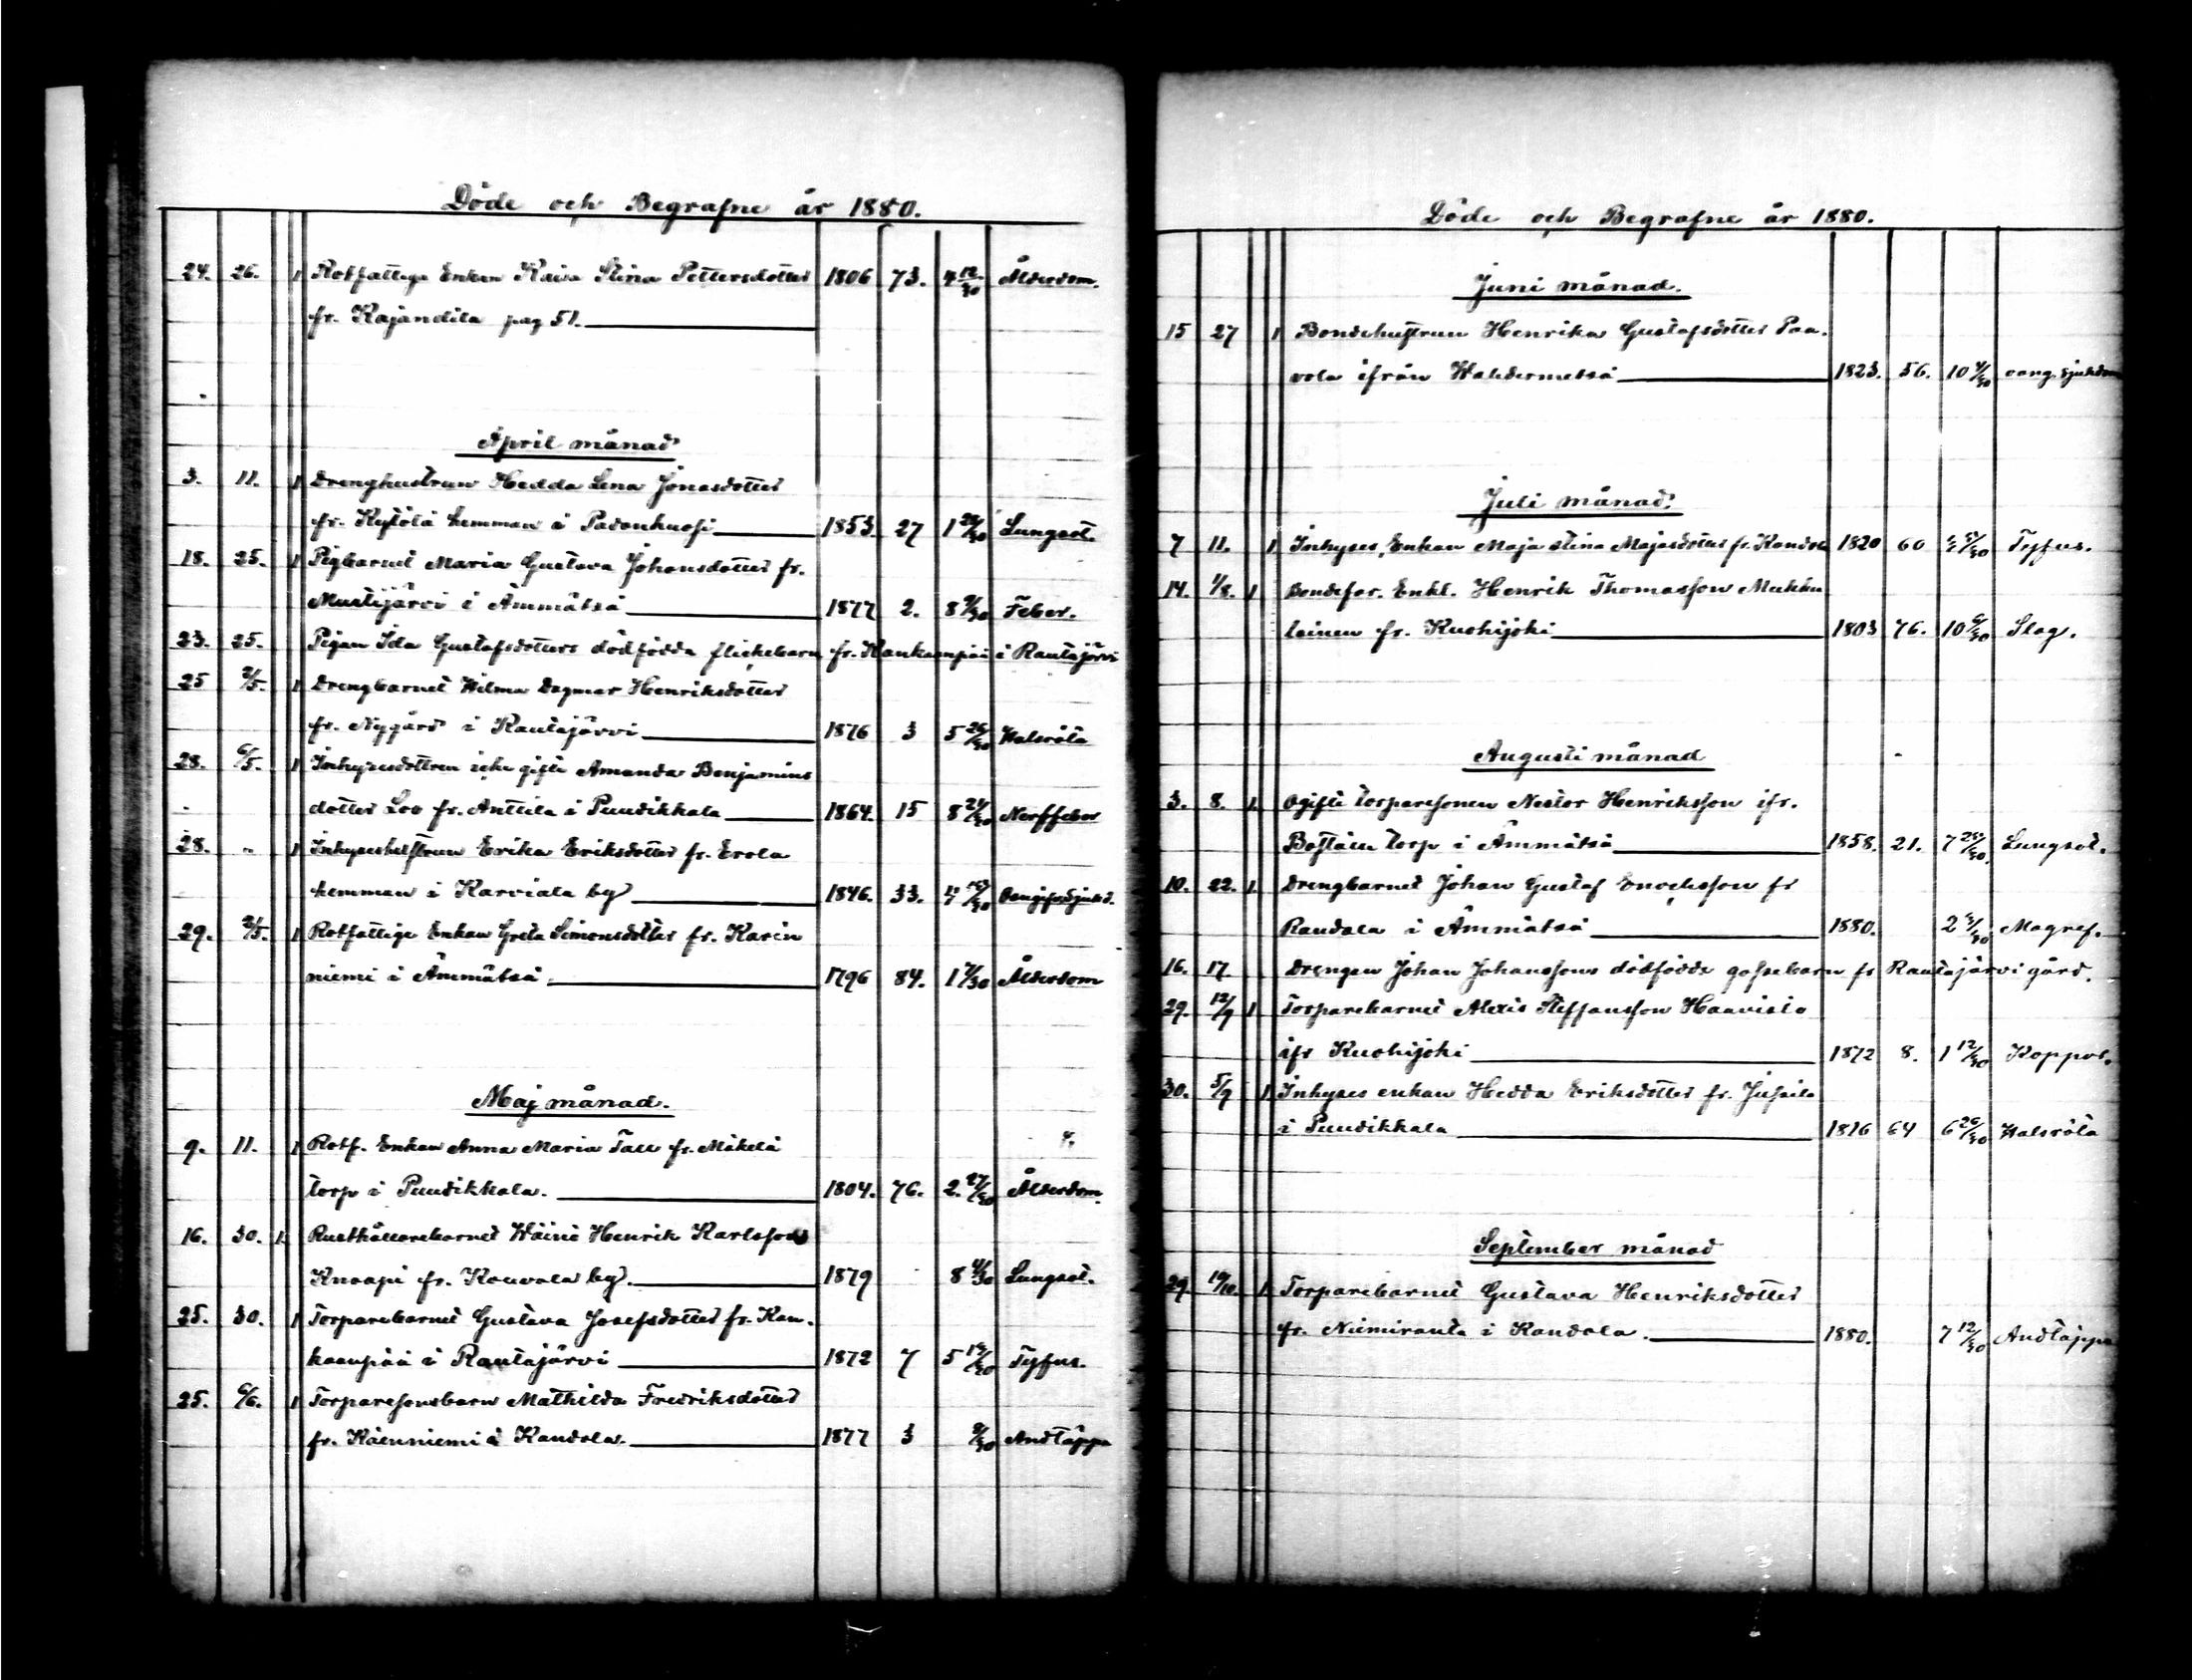 Döde och Begrafne år 1880.
24. 26. 1 Rotfattige Enkan Kaisa Stina Pettersdotter 1806 73. 12/30 Ålderdom.
fr. Kajandila pag 51.
April månad
3. 11. 1 Drenghustrun Hedda Lena Jonasdotter
fr. Kytölä hemman i Padonkuosi 1853. 27 1 28/30 Lungsot.
18. 25. 1 Pigbarnet Maria Gustava Johansdotter fr.
Mustijärvi i Ämmätsä 1877 2. 8 /30 Feber.
23. 25. Pigan Ida Gustafsdotters dödfödda flickebarn fr. Kankaanpää i Rautajärvi
25 2/5. 1 Drengbarnet Wilma Dagmar Henriksdotter
fr. Nygård i Rautajärvi 1876 3 5 26/30 Halsröta
28. 6/5. 1 Inhysesdottren icke gifta Amanda Benjamins
dotter Loo fr. Anttila i Puudikkala 1864. 15 8 21/30 Nerffeber
28. " 1 Inhyseshustrun Erika Eriksdotter fr. Erola
hemman i Karviala by 1846. 33. /30
29. 2/5. 1 Rotfattige Enkan Greta Simonsdotter fr. Karin
niemi i Ämmätsä. 1796 84. 1 7/30 Ålderdom
Maj månad.
9. 11. 1 Rotf. Enkan Anna Maria Tall fr. Mäkelä
torp i Puudikkala. 1804. 76. 2. 27/30 Ålderdom.
16. 30. 1. Rusthållarebarnet Wäinö Henrik Karlsson
Knaapi fr. Kouvola by. 1879 8 4/30 Lungsot.
25. 30. 1 Torparebarnet Gustava Josefsdotter fr. Kan-
kaanpää i Rautajärvi 1872 7 5 /30 Tyfus.
25. 6/6. 1 Torparesonsbarn Mathilda Fredriksdotter
fr. Käenniemi i Kandola. 1877 3 9/30 Andtäppa
Döde och Begrafne år 1880.
Juni månad.
15 27 1 Bondehustrun Henrika Gustafsdotter Paa-
vola ifrån Wahdermetsä 1823. 56. 10 4/30 oang. sjukdom
Juli månad.
7 11. 1 Inhyses Enkan Maja Stina Majasdotter fr. Kandola 1820 60 /30 Tyfus.
14. 1/8. 1 Bondefar. Enkl. Henrik Thomasson Mukku
lainen fr. Kuohijoki 1803 76. 10 6/30 Slag.
Augusti månad
3. 8. 1. Ogifte torparesonen Nestor Henriksson ifr.
torp i Ämmätsä 1858. 21. 7 /30 Lungsot.
10. 22. 1. Drengbarnet Johan Gustaf Enochsson fr
Raudala i Ämmätsä 1880. 2 /30 Magref.
16. 17 Drengen Johan Johanssons dödfödde gossebarn fr Rautajärvi gård.
29. 12/9 1 Torparebarnet Alexis Steffansson Haavisto
ifr Kuohijoki 1872 8. 1 12/30 Koppor.
30. 5/9 1 Inhyses enkan Hedda Eriksdotter fr. Jussila
i Puudikkala 1816 64 6 26/30 Halsröta
September månad
29 10/10. 1. Torparebarnet Gustava Henriksdotter
fr. Niemiranta i Kandola. 1880. 7 12/30 Andtäppa